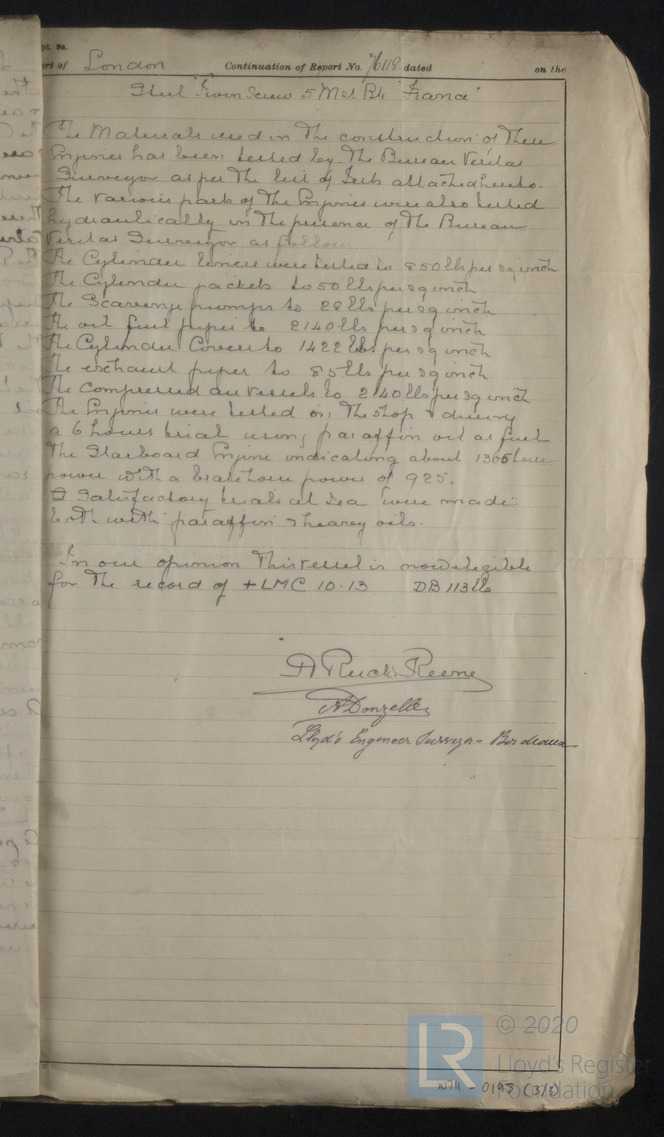 pt. 9a.
rt of London Continuation of Report No. 76118 dated on the
Steel Twin Screw 5 Mst Bk "France"
The Materials used in the construction of these
Engines has been tested by the Bureau Veritas
Surveyor as per the list of tests attached hereto.
The various parts of the Engines were also tested
hydraulically in the presence of the Bureau
Veritas Surveyor as follows
The Cylinder liners were tested to 850 lbs per sq inch
The Cylinder jackets to 50 lbs per sq inch
The Scavenge pumps to 28 lbs per sq inch
The oil fuel pipes to 2140 lbs per sq inch
The Cylinder Covers to 1422 lbs per sq inch
The exhaust pipes to 85 lbs per sq inch
The compressed air vessels to 2140 lbs per sq inch
The Engines were tested on the shop & during
a 6 hours trial using paraffin oil as fuel
the Starboard Engine indicating about 1305 horse
power with a brake horse power of 925.
Satisfactory trials at sea were made
both with paraffin & heavy oils.
In our opinion this vessel is now eligible
for the record of +LMC 10.13 DB 113 lbs
A Donzelle
Lloyd's Engineer Surveyor - Bordeaux
LR
© 2020
Lloyd's Register
Foundation
W211 - 0195 (3/3)